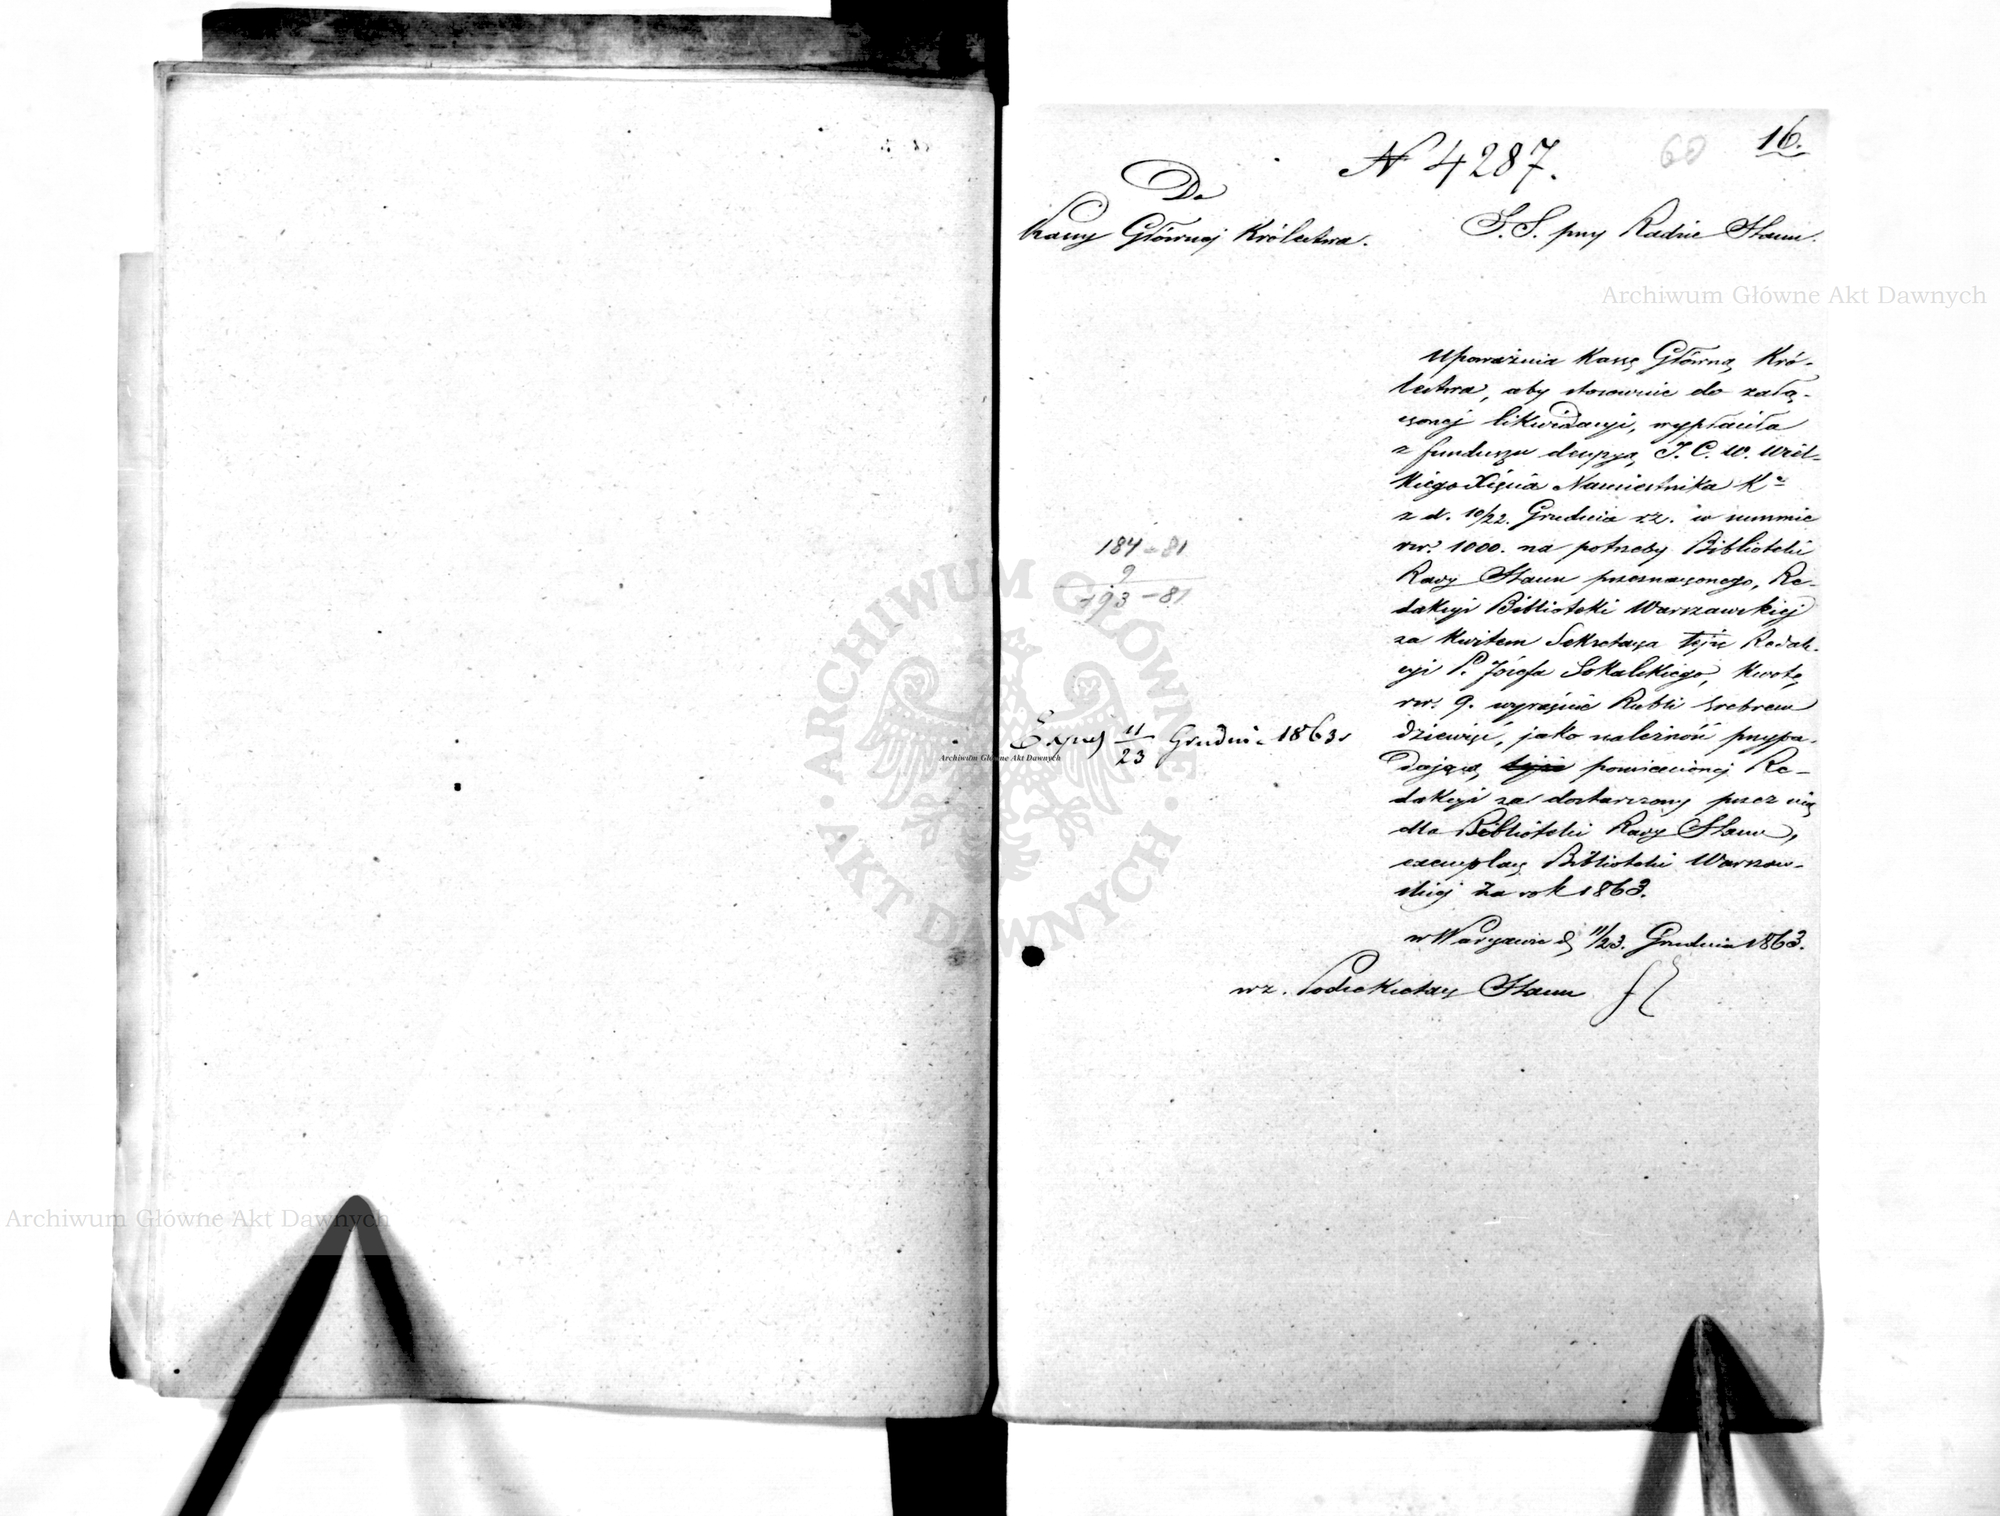 16.
60
N 4287.
Do
Kassy Głównej Królestwa.
S. S. przy Radzie Stanu.
Upoważnia Kassę Główną Kró-
lestwa, aby stosownie do załą-
czonej likwidacyi, wypłaciła
z funduszu decyzyą J. C. W. Wiel-
kiego Xięcia Namiestnika K
z d. 10/22. Grudnia r.z. w summie
rsr. 1000. na potrzeby Biblioteki
Rady Stanu przeznaczonego, Re-
dakcyi Biblioteki Warszawskiej
za kwitem Sekretarza tejże Redak-
cyi P. Józefa Sokalskiego, kwotę
rsr. 9. wyraźnie Rubli srebrem
dziewięć, jako należność przypa-
dającą tejże pomienionej Re-
dakcyi za dostarczony przez nią
dla Biblioteki Rady Stanu,
exemplarz Biblioteki Warszaw-
skiej za rok 1863.
w Warszawie d. 11/23. Grudnia 1863.
wz. Podsekretarz Stanu
184-81
9
193-81
11/23 Grudnia 1863
Archiwum Główne Akt Dawnych
Archiwum Główne Akt Dawnych
Archiwum Główne Akt Dawnych
ARCHIWUM GŁÓWNE
· AKT DAWNYCH ·